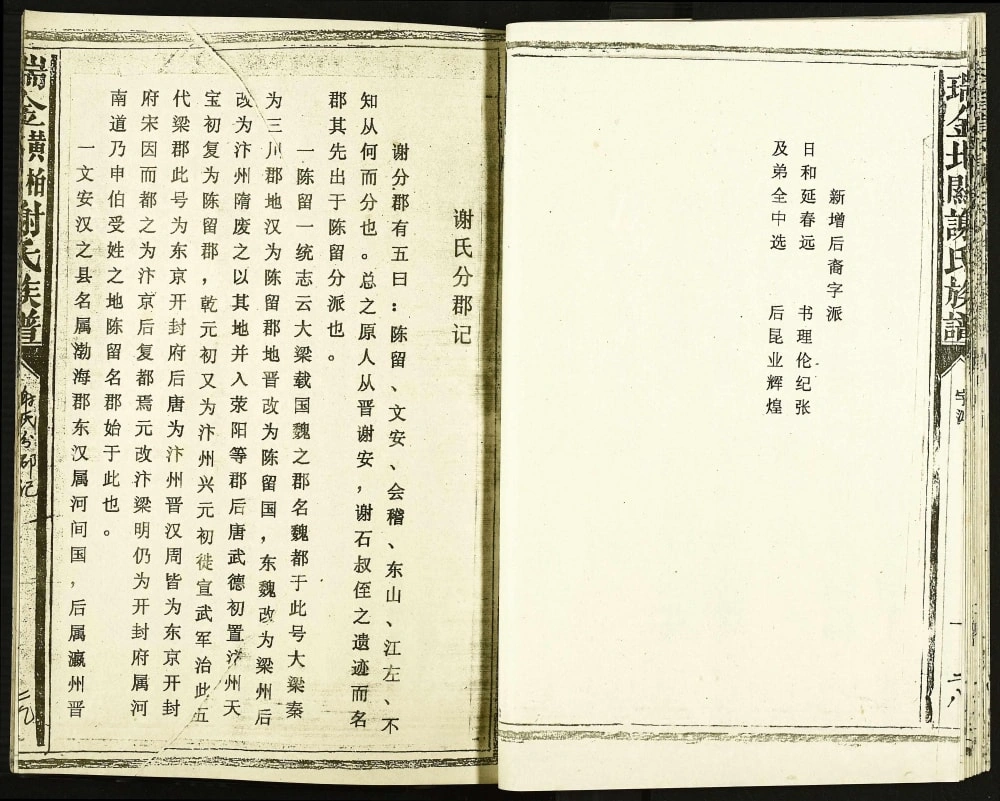 瑞金
關謝氏族譜
字派
二八
新增后裔字派
日和延春远 书理伦纪张
及弟全中选 后昆业辉煌
谢氏分郡记
谢分郡有五曰：陈留、文安、会稽、东山、江左、不
知从何而分也。总之原人从晋谢安，谢石叔侄之遗迹而名
郡其先出于陈留分派也。
一陈留一统志云大梁载国魏之郡名魏都于此号大梁秦
为三川郡地汉为陈留郡地晋改为陈留国，东魏改为梁州后
改为汴州隋废之以其地并入荥阳等郡后唐武德初置汴州天
宝初复为陈留郡，乾元初又为汴州兴元初徙宣武军治此五
代梁郡此号为东京开封府后唐为汴州晋汉周皆为东京开封
府宋因而都之为汴京后复都焉元改汴梁明仍为开封府属河
南道乃申伯受姓之地陈留名郡始于此也。
一文安汉之县名属渤海郡东汉属河间国，后属瀛州晋
瑞金横
谢氏族譜
谢氏分郡记
二九